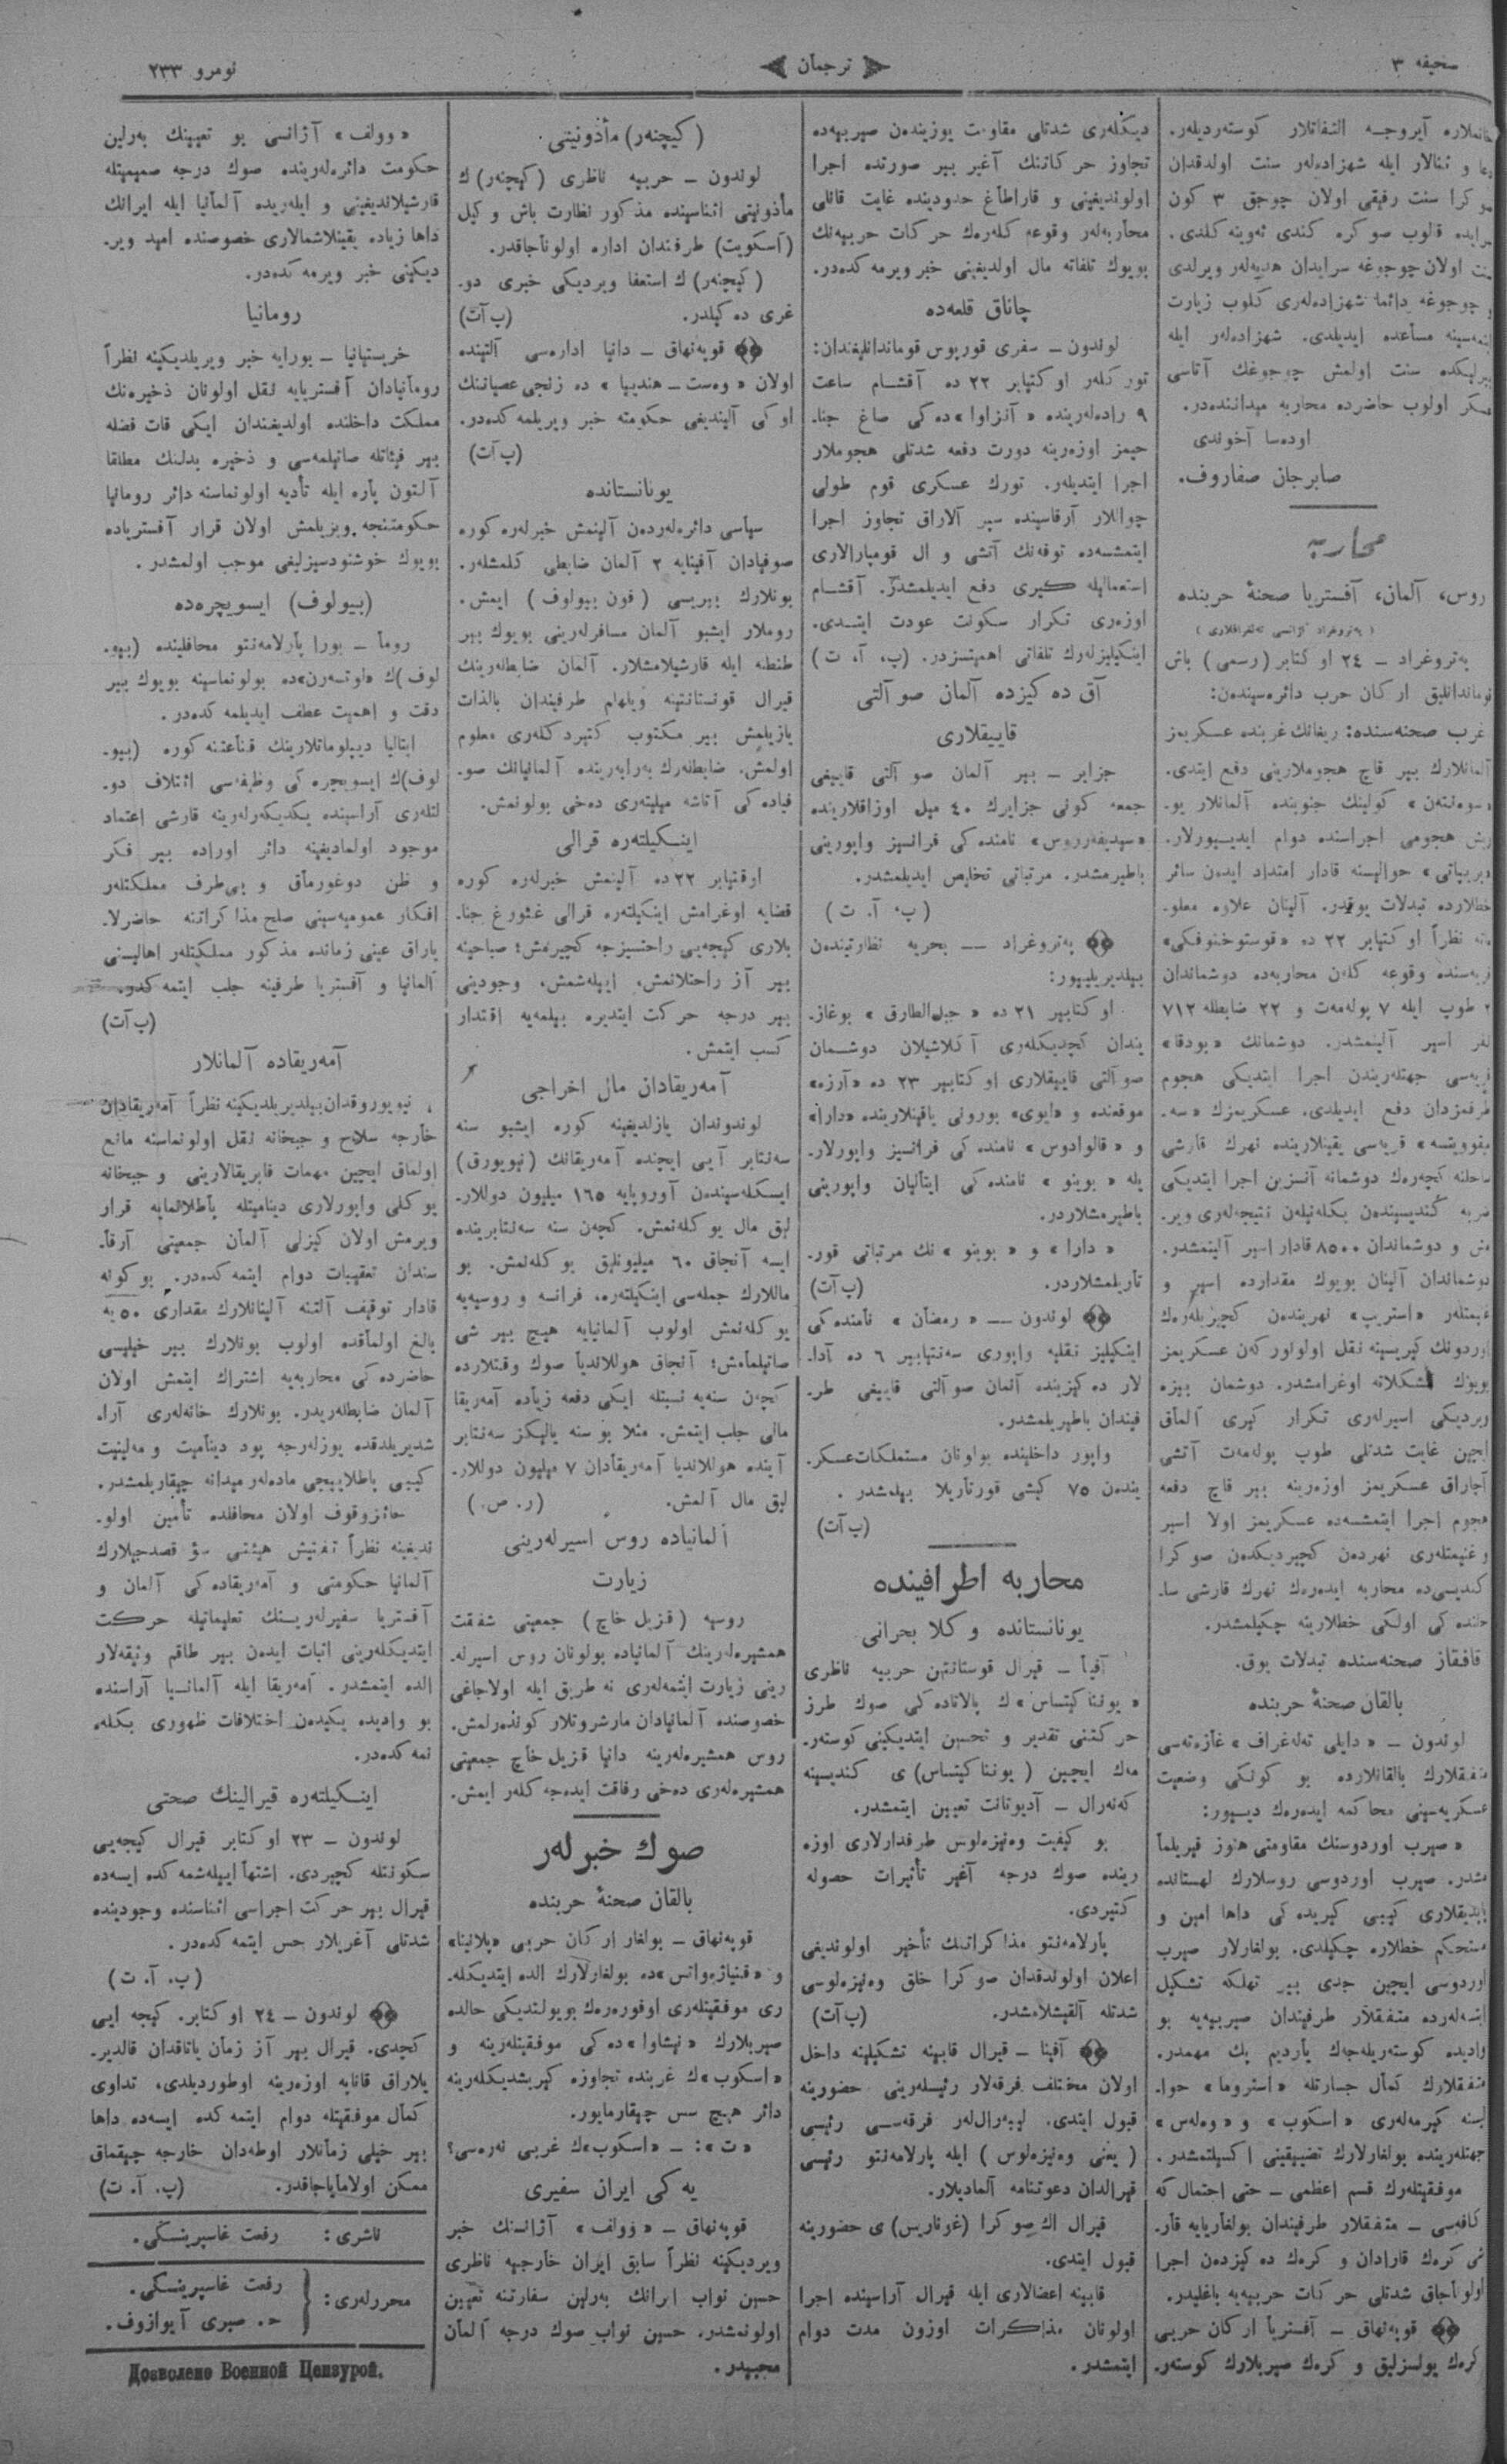 صحیفه ۳
ترجمان
نومرو ۲۳۳
خانملاره آیروجه التفاتلار کوسته‌ردیلەر.
دعا و ثنالار ایله شهزاده‌لەر سنت اولدقدان
صوکرا سنت رفیقی اولان چوجق ۳ کون
سرایده قالوب صوکره کندی ئه‌وینه کلدی.
سنت اولان چوجوغه سرایدان هدیه‌لەر ویرلدی
و چوجوغه دائما شهزاده‌لەری کلوب زیارت
ایتمه‌سینه مساعده ایدیلدی. شهزاده‌لەر ایله
بیرلیکده سنت اولمش چوجوغك آتاسی
عسکر اولوب حاضرده محاربه میداننده‌در.
اوده‌سا آخوندی
صابرجان صفاروف.
محاربه
روس، آلمان، آفستریا صحنهٔ حربنده
( په‌تروغراد آژانسی ته‌لغرافلاری )
په‌تروغراد ــ ۲۴ اوکتابر (رسمی) باش
قوماندانلیق ارکان حرب دائره‌سیندەن:
غرب صحنه‌سنده: ریغانك غربنده عسکریمز
آلمانلارك بیر قاچ هجوملارینی دفع ایتدی.
«سوه‌نتەن» کولینك جنوبنده آلمانلار یو-
ریش هجومی اجراسنده دوام ایدییورلار.
«پریپاتی» حوالیسنه قادار امتداد ایدەن سائر
خطلارده تبدلات یوقدر. آلینان علاوه معلو-
ماته نظراً اوکتابر ۲۲ ده «قوستوخنوفکی»
قریه‌سنده وقوعه کلەن محاربه‌ده دوشماندان
۲ طوپ ایله ۷ پوله‌مه‌ت و ۲۲ ضابطله ۷۱۲
نفر اسیر آلینمشدر. دوشمانك «بودقا»
قریه‌سی جهتلەریندن اجرا ایتدیکی هجوم
طرفمزدان دفع ایدیلدی. عسکریمزك «سه-
میقوویتسه» قریه‌سی یقینلارینده نهرك قارشی
ساحلنه کچه‌رەك دوشمانه آنسزین اجرا ایتدیکی
ضربه کندیسیندەن بکله‌نیلەن نتیجه‌لەری ویر-
مش و دوشماندان ۸۵۰۰ قادار اسیر آلینمشدر.
دوشماندان آلینان بویوك مقدارده اسیر و
غنیمتلەر «استریپ» نهریندەن کچیریلەرەك
اوردونك کیریسینه نقل اولونور کەن عسکریمز
بویوك مشکلاته اوغرامشدر. دوشمان بیزه
ویردیکی اسیرلەری تکرار کیری آلماق
ایچین غایت شدتلی طوپ پوله‌مه‌ت آتشی
آچاراق عسکریمز اوزەرینه بیر قاچ دفعه
هجوم اجرا ایتمشسه‌ده عسکریمز اولا اسیر
و غنیمتلەری نهردەن کچیردیکدەن صوکرا
کندیسی‌ده محاربه ایدەرەك نهرك قارشی سا-
حلنده‌کی اولکی خطلارینه چکیلمشدر.
قافقاز صحنه‌سنده تبدلات یوق.
بالقان صحنهٔ حربنده
لوندون ــ «دایلی ته‌له‌غراف» غازه‌ته‌سی
متفقلارك بالقانلارده بو کونکی وضعیت
عسکریه‌سینی محاکمه ایدەرەك دییور:
«صیرب اوردوسنك مقاومتی هنوز قیریلما-
مشدر. صیرب اوردوسی روسلارك لهستانده
یاپدیقلاری کیبی کیریده‌کی داها امین و
مستحکم خطلاره چکیلدی. بولغارلار صیرب
اوردوسی ایچین جدی بیر تهلکه تشکیل
ایتسه‌لەرده متفقلار طرفیندان صیربیه‌یه بو
وادیده کوستەریلەجەك یاردیم پك مهمدر.
متفقلارك کمال جسارتله «استروما» حوا-
لیسنه کیرمه‌لەری «اسکوب» و «وەلەس»
جهتلەرینده بولغارلارك تضییقینی اکسیلتمشدر.
موفقیتلەرك قسم اعظمی ــ حتی احتمال که
کافه‌سی ــ متفقلار طرفیندان بولغاریایه قار-
شی کرەك قارادان و کرەك ده‌کیزدەن اجرا
اولوناجاق شدتلی حرکات حربیه‌یه باغلیدر.
قوپه‌نهاق ــ آفستریا ارکان حربی
کرەك یولسزلیق و کرەك صیربلارك کوستەر-
دیکلەری شدتلی مقاومت یوزیندەن صیربیه‌ده
تجاوز حرکاتنك آغیر بیر صورتده اجرا
اولوندیغینی و قاراطاغ حدودینده غایت قانلی
محاربه‌لەر وقوعه کلەرەك حرکات حربیه‌نك
بویوك تلفاته مال اولدیغینی خبر ویرمه‌کده‌در.
چاناق قلعه‌ده
لوندون ــ سفری قورپوس قوماندانلیغندان:
تورکلەر اوکتابر ۲۲ ده آقشام ساعت
۹ رادەلەرینده «آنزاوا»ده‌کی صاغ جنا-
حیمز اوزەرینه دورت دفعه شدتلی هجوملار
اجرا ایتدیلەر. تورك عسکری قوم طولی
چواللار آرقاسینده سیر آلاراق تجاوز اجرا
ایتمشسه‌ده توفەنك آتشی و ال قومبارالاری
استعمالیله کیری دفع ایدیلمشدر. آقشام
اوزەری تکرار سکونت عودت ایتدی.
اینکیلیزلەرك تلفاتی اهمیتسزدر. (پ، آ، ت)
آق ده‌کیزده آلمان صو آلتی
قاییقلاری
جزایر ــ بیر آلمان صو آلتی قاییغی
جمعه کونی جزایرك ۴۰ میل اوزاقلارینده
«سیدیفەرروس» نامنده‌کی فرانسیز واپورینی
باطیرمشدر. مرتباتی تخلیص ایدیلمشدر.
(پ، آ. ت)
په‌تروغراد ــ بحریه نظارتیندەن
بیلدیریلییور:
اوکتابیر ۲۱ ده «جبل‌الطارق» بوغاز-
یندان کچدیکلەری آکلاشیلان دوشمان
صو آلتی قاییقلاری اوکتابیر ۲۳ ده «آرزه»
موقعنده و «ایوی» بورونی یاقینلارینده «دارا»
و «قالوادوس» نامنده‌کی فرانسیز واپورلار-
یله «بوینو» نامنده‌کی ایتالیان واپورینی
باطیرمشلاردر.
«دارا» و «بوینو» نك مرتباتی قور-
تاریلمشلاردر. (پ آ ت)
لوندون ــ «رمضان» نامنده‌کی
اینکیلیز نقلیه واپوری سه‌نتیابیر ۶ ده آدا-
لار ده‌کیزینده آلمان صو آلتی قاییغی طر-
فیندان باطیریلمشدر.
واپور داخلینده بولونان مستملکات‌عسکر-
یندەن ۷۵ کیشی قورتاریلا بیلمشدر.
(پ آ ت)
محاربه اطرافینده
یونانستانده وکلا بحرانی
آفینا ــ قیرال قوستانتین حربیه ناظری
«یوننا کیتساس»ك پالاتاده‌کی صوك طرز
حرکتنی تقدیر و تحسین ایتدیکینی کوستەر-
مەك ایچین (یوننا کیتساس)ی کندیسینه
که‌نه‌رال ــ آدیوتانت تعیین ایتمشدر.
بو کیفیت وه‌نیزه‌لوس طرفدارلاری اوزه-
رینده صوك درجه آغیر تأثیرات حصوله
کتیردی.
پارلامه‌نتو مذاکراتنك تأخیر اولوندیغی
اعلان اولوندقدان صوکرا خلق وه‌نیزه‌لوسی
شدتله آلقیشلامشدر. (پ آ ت)
آفینا ــ قیرال قابینه تشکیلینه داخل
اولان مختلف فرقه‌لار رئیسلەرینی حضورینه
قبول ایتدی. لیبه‌رال‌لەر فرقه‌سی رئیسی
(یعنی وه‌نیزه‌لوس) ایله پارلامه‌نتو رئیسی
قیرالدان دعوتنامه آلمادیلار.
قیرال اك صوکرا (غوناریس)ی حضورینه
قبول ایتدی.
قابینه اعضالاری ایله قیرال آراسینده اجرا
اولونان مذاکرات اوزون مدت دوام
ایتمشدر.
(کیچنەر) مأذونیتی
لوندون ــ حربیه ناظری (کیچنەر)ك
مأذونیتی اثناسینده مذکور نظارت باش وکیل
(آسکویت) طرفندان اداره اولوناجاقدر.
(کیچنەر)ك استعفا ویردیکی خبری دو-
غری ده‌کیلدر. (پ آ ت)
قوپه‌نهاق ــ دانیا اداره‌سی آلتینده
اولان «وه‌ست ــ هندییا» ده زنجی عصیاننك
اوکی آلیندیغی حکومته خبر ویریلمه‌کده‌در.
(پ آ ت)
یونانستانده
سیاسی دائره‌لەردەن آلینمش خبرلەره کوره
صوفیادان آفینایه ۲ آلمان ضابطی کلمشلەر.
بونلارك بیریسی (فون بیولوف) ایمش.
روملار ایشبو آلمان مسافرلەرینی بویوك بیر
طنطنه ایله قارشیلامشلار. آلمان ضابطه‌لەرینك
قیرال قونستانتینه ویلهلم طرفیندان بالذات
یازیلمش بیر مکتوب کتیردکلەری معلوم
اولمش. ضابطه‌لەرك به‌رابه‌رینده آلمانیانك صو-
فیاده‌کی آتاشه میلیتەری دەخی بولونمش.
اینکیلته‌ره قرالی
اوقتیابر ۲۲ ده آلینمش خبرلەره کوره
قضایه اوغرامش اینکیلته‌ره قرالی غئورغ جنا-
بلاری کیجه‌یی راحتسیزجه کچیرمش؛ صباحینه
بیر آز راحتلانمش، اییلەشمش، وجودینی
بیر درجه حرکت ایتدیره بیلمه‌یه اقتدار
کسب ایتمش.
آمه‌ریقادان مال اخراجی
لوندوندان یازلدیغینه کوره ایشبو سنه
سه‌نتابر آیی ایچنده آمه‌ریقانك (نیویورق)
ایسکله‌سیندەن آوروپایه ۱۶۵ میلیون دوللار-
لیق مال یوکله‌نمش. کچەن سنه سه‌نتابرینده
ایسه آنجاق ۶۰ میلیونلیق یوکله‌نمش. بو
ماللارك جمله‌سی اینکیلته‌ره، فرانسه و روسیه‌یه
یوکله‌نمش اولوب آلمانیایه هیچ بیر شی
صاتیلمامش؛ آنجاق هوللاندیا صوك وقتلارده
کچەن سنه‌یه نسبتله ایکی دفعه زیاده آمه‌ریقا
مالی جلب ایتمش. مثلا بو سنه یالیکز سه‌نتابر
آینده هوللاندیا آمه‌ریقادان ۷ میلیون دوللار-
لیق مال آلمش. (ر. ص.)
آلمانیاده روس اسیرلەرینی
زیارت
روسیه (قزیل خاچ) جمعیتی شفقت
همشیره‌لەرینك آلمانیاده بولونان روس اسیرلە-
رینی زیارت ایتمه‌لەری نه طریق ایله اولاجاغی
خصوصنده آلمانیادان مارشروتلار کونده‌رلمش.
روس همشیره‌لەرینه دانیا قزیل خاچ جمعیتی
همشیره‌لەری دەخی رفاقت ایده‌جه‌کلەر ایمش.
صوك خبرلەر
بالقان صحنهٔ حربنده
قوپه‌نهاق ــ بولغار ارکان حربی «پلانینا»
و «قنیاژه‌واتس»ده بولغارلارك الده ایتدیکلە-
ری موفقیتلەری اوفوره‌رەك بویولتدیکی حالده
صیربلارك «نیشاوا»ده‌کی موفقیتلەرینه و
«اسکوب»ك غربنده تجاوزه کیریشدیکلەرینه
دائر هیچ سس چیقارمایور.
«ت»: ــ «اسکوب»ك غربی نه‌ره‌سی؟
یه‌کی ایران سفیری
قوپه‌نهاق ــ «وولف» آژانسنك خبر
ویردیکینه نظراً سابق ایران خارجیه ناظری
حسین نواب ایرانك به‌رلین سفارتنه تعیین
اولونمشدر. حسین نواب صوك درجه آلمان
محبیدر.
«وولف» آژانسی بو تعیینك به‌رلین
حکومت دائره‌لەرینده صوك درجه صمیمیتله
قارشیلاندیغینی و ایله‌ریده آلمانیا ایله ایرانك
داها زیاده یقینلاشمالاری خصوصنده امید ویر-
دیکینی خبر ویرمه‌کده‌در.
رومانیا
خریستیانیا ــ بورایه خبر ویریلدیکینه نظراً
رومانیادان آفستریایه نقل اولونان ذخیره‌نك
مملکت داخلنده اولدیغندان ایکی قات فضله
بیر فیئاتله صاتیلمه‌سی و ذخیره بدلنك مطلقا
آلتون پاره ایله تأدیه اولونماسنه دائر رومانیا
حکومتنجه ویریلمش اولان قرار آفستریاده
بویوك خوشنودسیزلیغی موجب اولمشدر.
(بیولوف) ایسویچره‌ده
روما ــ بورا پارلامه‌نتو محافلینده (بیو-
لوف)ك «لوتسه‌رن»ده بولونماسینه بویوك بیر
دقت و اهمیت عطف ایدیلمه‌کده‌در.
ایتالیا دیپلوماتلارینك قناعتنه کوره (بیو-
لوف)ك ایسویچره‌کی وظیفه‌سی ائتلاف دو-
لتلەری آراسینده یکدیکه‌رلەرینه قارشی اعتماد
موجود اولمادیغینه دائر اوراده بیر فکر
و ظن دوغورماق و بی‌طرف مملکتلەر
افکار عمومیه‌سینی صلح مذاکراتنه حاضرلا-
یاراق عینی زمانده مذکور مملکتلەر اهالیسنی
آلمانیا و آفستریا طرفینه جلب ایتمه‌کدر.
(پ آ ت)
آمه‌ریقاده آلمانلار
نیویوروقدان بیلدیریلدیکینه نظراً آمه‌ریقادان
خارجه سلاح و جبخانه نقل اولونماسنه مانع
اولماق ایچین مهمات فابریقالارینی و جبخانه
یوکلی واپورلاری دینامیتله پاطلاتمایه قرار
ویرمش اولان کیزلی آلمان جمعیتی آرقا-
سندان تعقیبات دوام ایتمه‌کده‌در. بو کونه
قادار توقیف آلتنه آلینانلارك مقداری ۵۰ یه
بالغ اولماقده اولوب بونلارك بیر خیلیسی
حاضرده‌کی محاربه‌یه اشتراك ایتمش اولان
آلمان ضابطه‌لەریدر. بونلارك خانه‌لەری آرا-
شدیریلدقده یوزلەرجه پود دینامیت و مه‌لینیت
کیبی پاطلاییجی ماده‌لەر میدانه چیقاریلمشدر.
حائزوقوف اولان محافلده تأمین اولو-
ندیغینه نظراً تفتیش هیئتی سؤ قصدجیلارك
آلمانیا حکومتی و آمه‌ریقاده‌کی آلمان و
آفستریا سفیرلەرینك تعلیماتیله حرکت
ایتدیکلەرینی اثبات ایدەن بیر طاقم وثیقه‌لار
الده ایتمشدر. آمه‌ریقا ایله آلمانیا آراسنده
بو وادیده یکیدەن اختلافات ظهوری بکله-
نمه‌کده‌در.
اینکیلته‌ره قیرالینك صحتی
لوندون ــ ۲۳ اوکتابر قیرال کیجه‌یی
سکونتله کچیردی. اشتها اییلەشمه‌کده ایسه‌ده
قیرال بیر حرکت اجراسی اثناسنده وجودینده
شدتلی آغریلار حس ایتمه‌کده‌در.
(پ. آ. ت)
لوندون ــ ۲۴ اوکتابر. کیجه ایی
کچدی. قیرال بیر آز زمان یاتاقدان قالدیر-
یلاراق قاناپه اوزەرینه اوطوردیلدی، تداوی
کمال موفقیتله دوام ایتمه‌کده ایسه‌ده داها
بیر خیلی زمانلار اوطه‌دان خارجه چیقماق
ممکن اولامایاجاقدر. (پ. آ. ت)
ناشری: رفعت غاسپرینسکی.
محررلەری: رفعت غاسپرینسکی.
ح. صبری آیوازوف.
Дозволено Военной Цензурой.